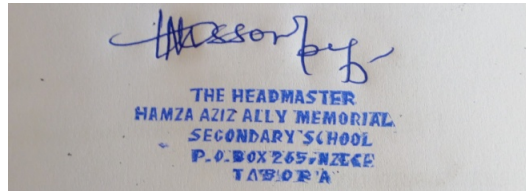 THE HEADMASTER
HAMZA AZIZ ALLY MEMORIAL
SECONDARY SCHOOL
P.O.BOX 265, NZEGE
TABORA